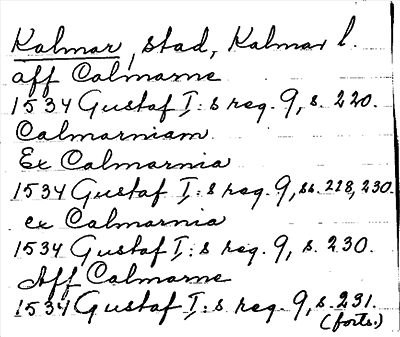 Kalmar, stad, Kalmar l.
aff Calmarne
1534 Gustaf I:s reg. 9, s. 220.
Calmarniam
Ex Calmarnia
1534 Gustaf I:s reg. 9, ss. 228, 230.
ex Calmarnia
1534 Gustaf I:s reg. 9, s. 230.
Aff Calmarne
1534 Gustaf I:s reg. 9, s. 231.
(forts.)